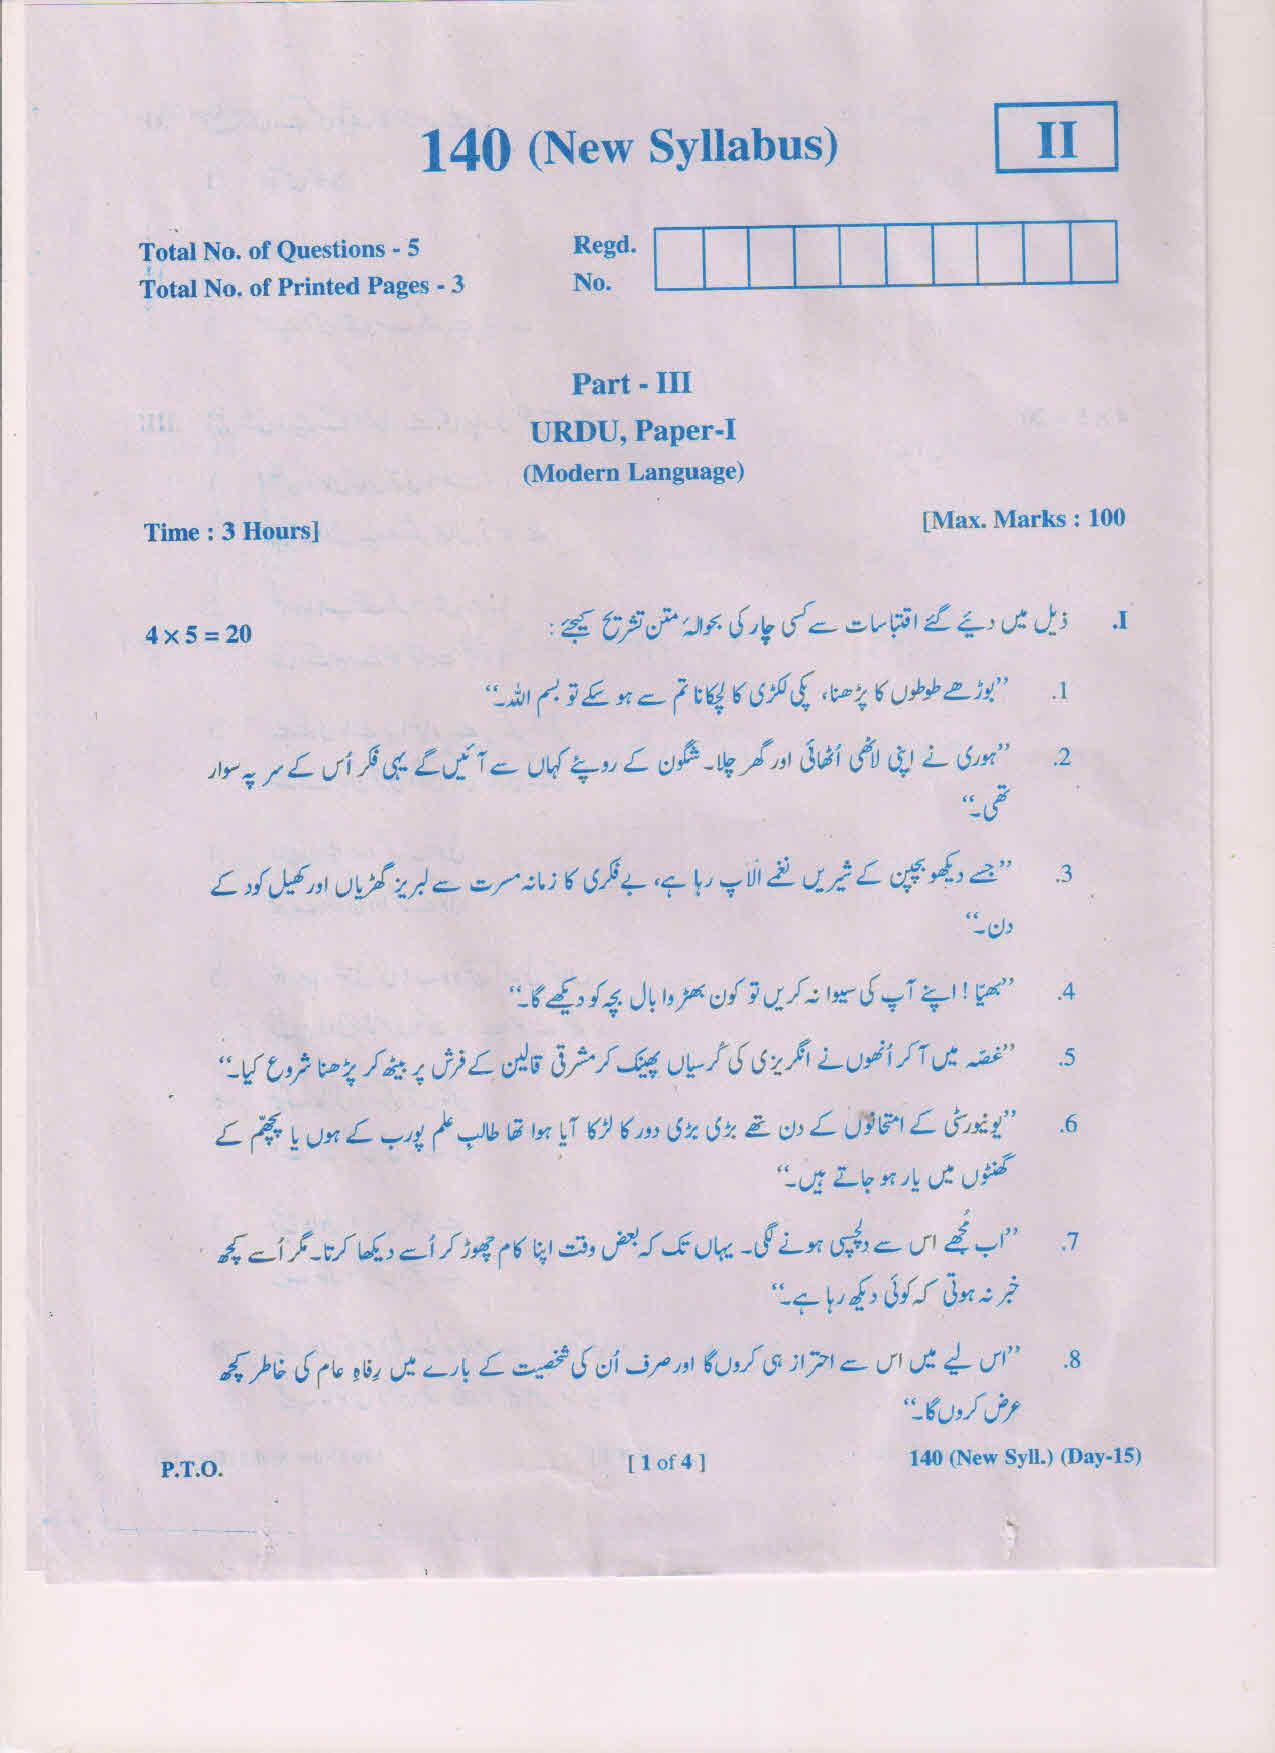 140 (New Syllabus)
II
Total No. of Questions - 5
Total No. of Printed Pages - 3
Regd.
No.
Part - III
URDU, Paper-I
(Modern Language)
Time : 3 Hours]
[Max. Marks : 100
I. ذیل میں دیئے گئے اقتباسات سے کسی چار کی بحوالۂ متن تشریح کیجئے :
4 × 5 = 20
1. ”بوڑھے طوطوں کا پڑھنا، پکی لکڑی کا لچکانا تم سے ہو سکے تو بسم اللہ۔“
2. ”ہوری نے اپنی لاٹھی اُٹھائی اور گھر چلا۔ شگون کے روپئے کہاں سے آئیں گے یہی فکر اُس کے سر پہ سوار
تھی۔“
3. ”جسے دیکھو بچپن کے شیریں نغمے الاپ رہا ہے، بے فکری کا زمانہ مسرت سے لبریز گھڑیاں اور کھیل کود کے
دن۔“
4. ”بھیّا ! اپنے آپ کی سیوا نہ کریں تو کون بھڑوا بال بچہ کو دیکھے گا۔“
5. ”غصّہ میں آ کر اُنھوں نے انگریزی کی کُرسیاں پھینک کر مشرقی قالین کے فرش پر بیٹھ کر پڑھنا شروع کیا۔“
6. ”یونیورسٹی کے امتحانوں کے دن تھے بڑی بڑی دور کا لڑکا آیا ہوا تھا طالبِ علم پورب کے ہوں یا پچھّم کے
گھنٹوں میں یار ہو جاتے ہیں۔“
7. ”اب مُجھے اس سے دلچسپی ہونے لگی۔ یہاں تک کہ بعض وقت اپنا کام چھوڑ کر اُسے دیکھا کرتا۔ مگر اُسے کچھ
خبر نہ ہوتی کہ کوئی دیکھ رہا ہے۔“
8. ”اس لیے میں اس سے احتراز ہی کروں گا اور صرف اُن کی شخصیت کے بارے میں رِفاہِ عام کی خاطر کچھ
عرض کروں گا۔“
P.T.O.
[ 1 of 4 ]
140 (New Syll.) (Day-15)